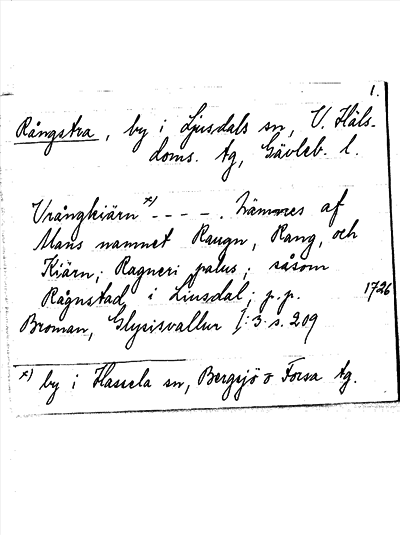 1.
Rångstva, by i Ljusdals sn, V. Häls-
doms. tg, Gävleb. l.
Vrångkiärn x) - - - - . nämnes af
Mans namnet Raugn, Rang, och
Kiärn; Ragneri palus; såsom
Rågnstad i Liusdal; p. p. 1726
Broman, Glysisvallur I: 3. s. 209
x) by i Hassela sn, Bergsjö o Forsa tg.